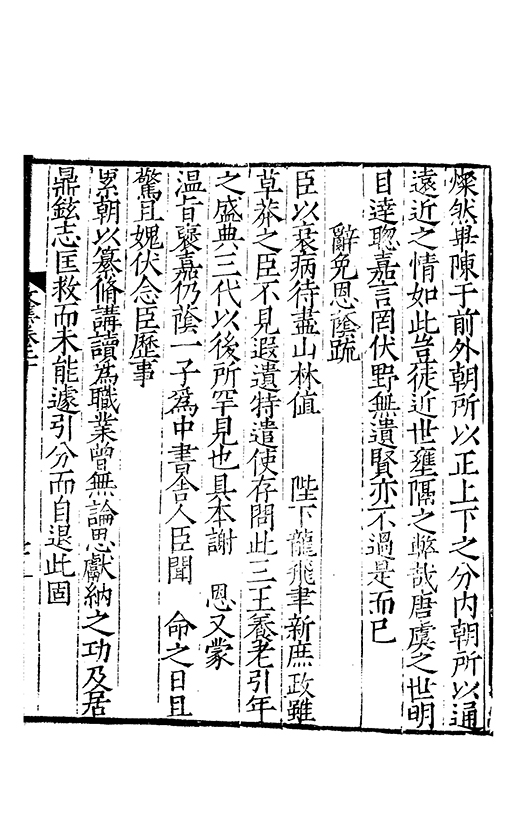 燦然畢陳于前外朝所以正上下之分内朝所以通
遠近之情如此豈徒近世壅隔之弊哉唐虞之世明
目達聦嘉言罔伏野無遺賢亦不過是而已
辭免恩蔭䟽
臣以衰病待盡山林值　陛下龍飛聿新庶政雖
草莽之臣不見遐遺特遣使存問此三王養老引年
之盛典三代以後所罕見也具本謝　恩又蒙
温旨褒嘉仍蔭一子爲中書舍人臣聞　命之日且
驚且媿伏念臣歷事
累朝以纂脩講讀爲職業曾無論思獻納之功及居
鼎鉉志匡救而未能遽引分而自退此固
文集卷三十